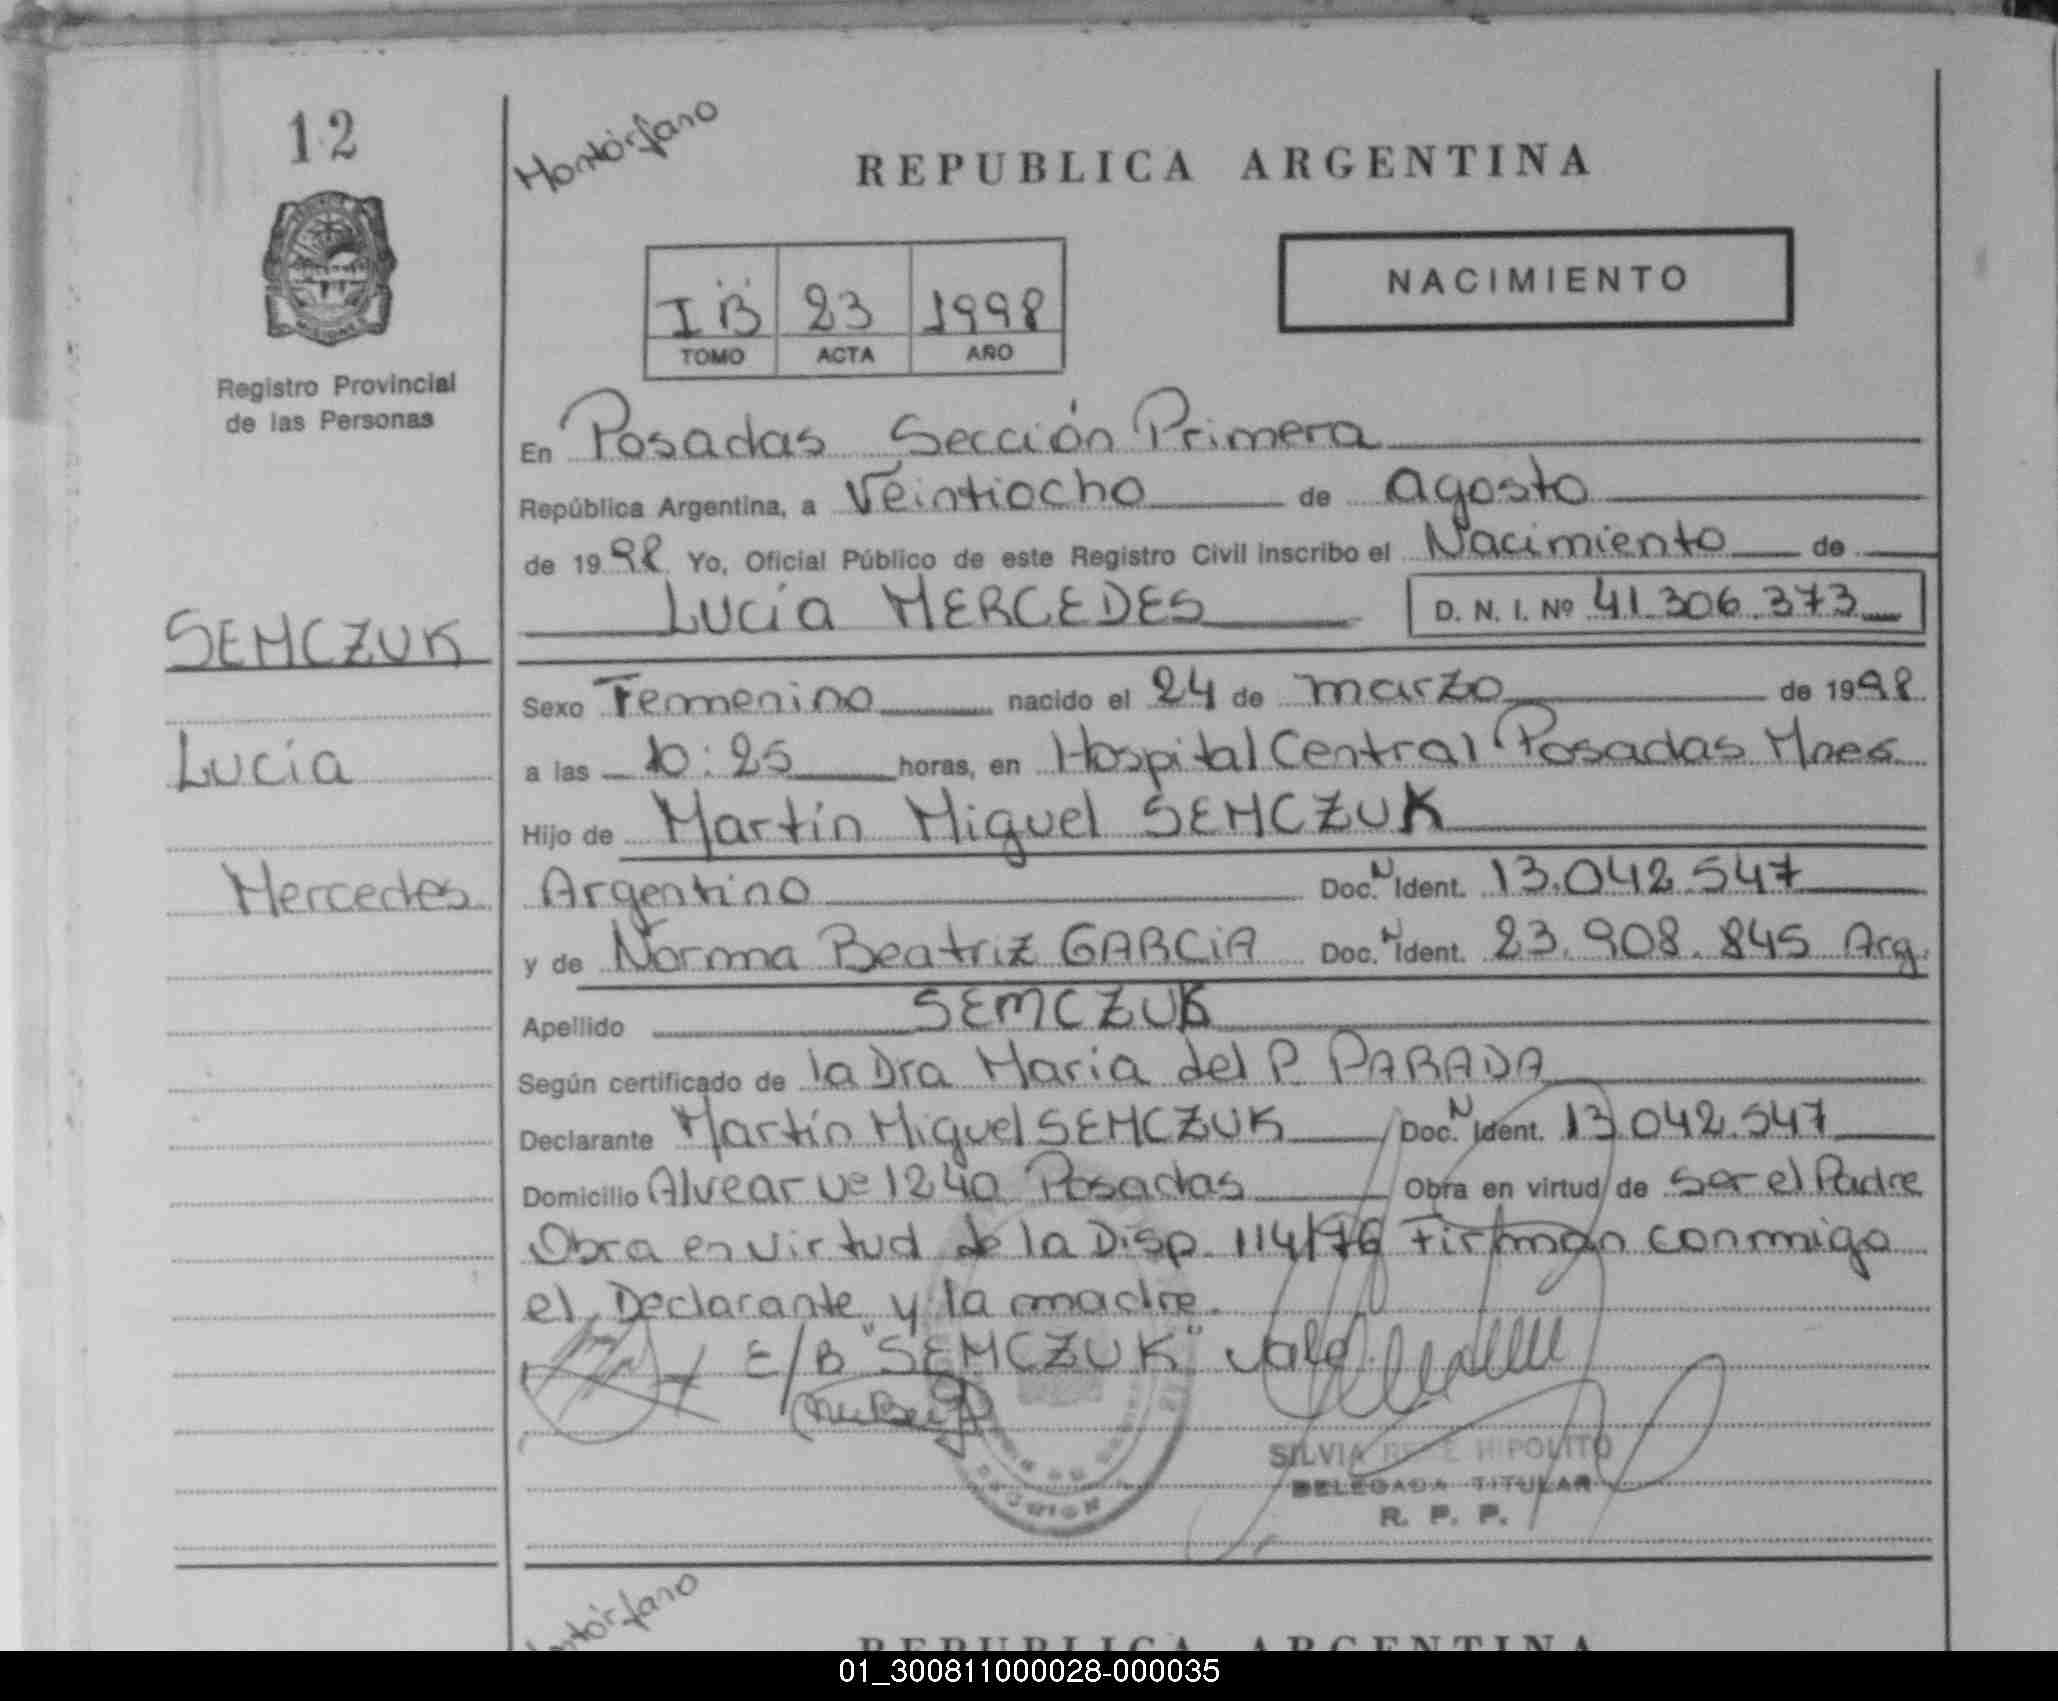 12
Montórfano
REPUBLICA ARGENTINA
NACIMIENTO
I B 23 1998
TOMO ACTA AÑO
Registro Provincial
de las Personas
En Posadas Sección Primera
República Argentina, a Veintiocho de agosto
de 1998 Yo, Oficial Público de este Registro Civil inscribo el Nacimiento de
Lucía MERCEDES D. N. I. Nº 41.306.373
SEMCZUK
Sexo Femenino nacido el 24 de marzo de 1998
Lucía
a las 10:25 horas, en Hospital Central Posadas Mnes
Hijo de Martín Miguel SEMCZUK
Mercedes
Argentino Doc. N Ident. 13.042.547
y de Norma Beatriz GARCIA Doc. N Ident. 23.908.845 Arg.
Apellido SEMCZUK
Según certificado de la Dra Maria del P. PARADA
Declarante Martín Miguel SEMCZUK Doc. N Ident. 13.042.547
Domicilio Alvear Nº 1240 Posadas Obra en virtud de ser el Padre
Obra en virtud de la Disp. 114/76 Firman conmigo
el Declarante y la madre.
E/B "SEMCZUK" Vale
SILVIA HIPOLITO
DELEGADA TITULAR
R. P. P.
REPUBLICA ARGENTINA
01_300811000028-000035